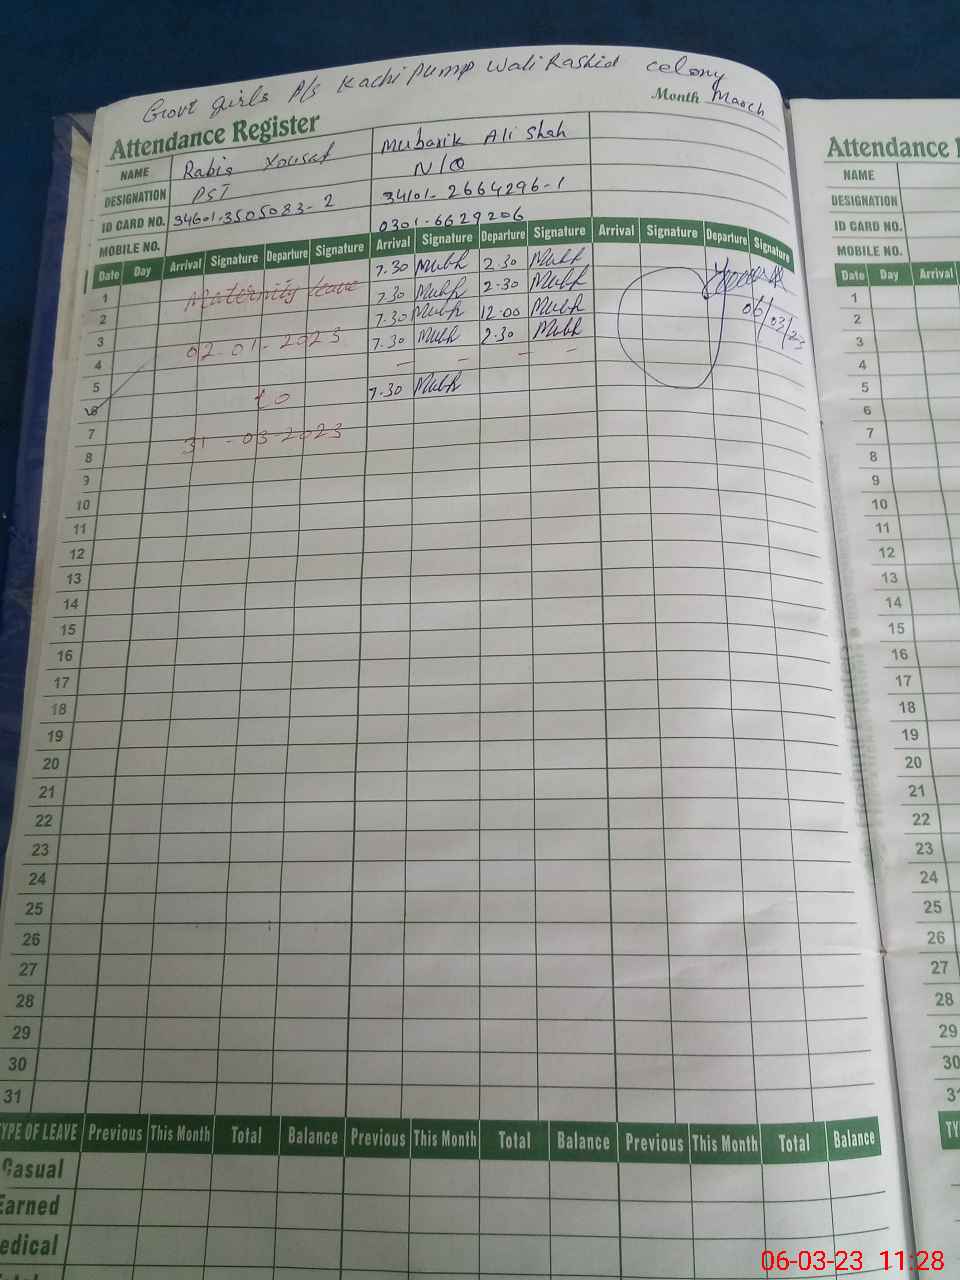 Govt girls P/s Kachi Pump Wali Rashid colony
Month March
Attendance Register
NAME Rabia Yousaf Mubarik Ali Shah
DESIGNATION PST N/Q
ID CARD NO. 34601-3505083-2 34101-2664296-1
MOBILE NO. 0301-6629206
Date Day Arrival Signature Departure Signature Arrival Signature Departure Signature Arrival Signature Departure Signature
1 Maternity leave 7.30 Mubk 2.30 Mubk
2 7.30 Mubk 2.30 Mubk
3 02-01-2023 7.30 Mubk 12.00 Mubk 06/03/23
4 7.30 Mubk 2.30 Mubk
5 to - - - -
6 7.30 Mubk
7 31-03-2023
8
9
10
11
12
13
14
15
16
17
18
19
20
21
22
23
24
25
26
27
28
29
30
31
TYPE OF LEAVE Previous This Month Total Balance Previous This Month Total Balance Previous This Month Total Balance
Casual
Earned
edical
Attendance
NAME
DESIGNATION
ID CARD NO.
MOBILE NO.
Date Day Arrival
1
2
3
4
5
6
7
8
9
10
11
12
13
14
15
16
17
18
19
20
21
22
23
24
25
26
27
28
29
30
TY
06-03-23 11:28